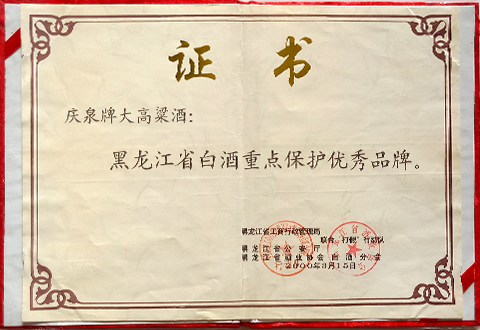 证书
庆泉牌大高粱酒：
黑龙江省白酒重点保护优秀品牌。
黑龙江省工商行政管理局
联合 打假 行动队
黑龙江省公安厅
黑龙江省酒业协会白酒分会
2000年3月15日